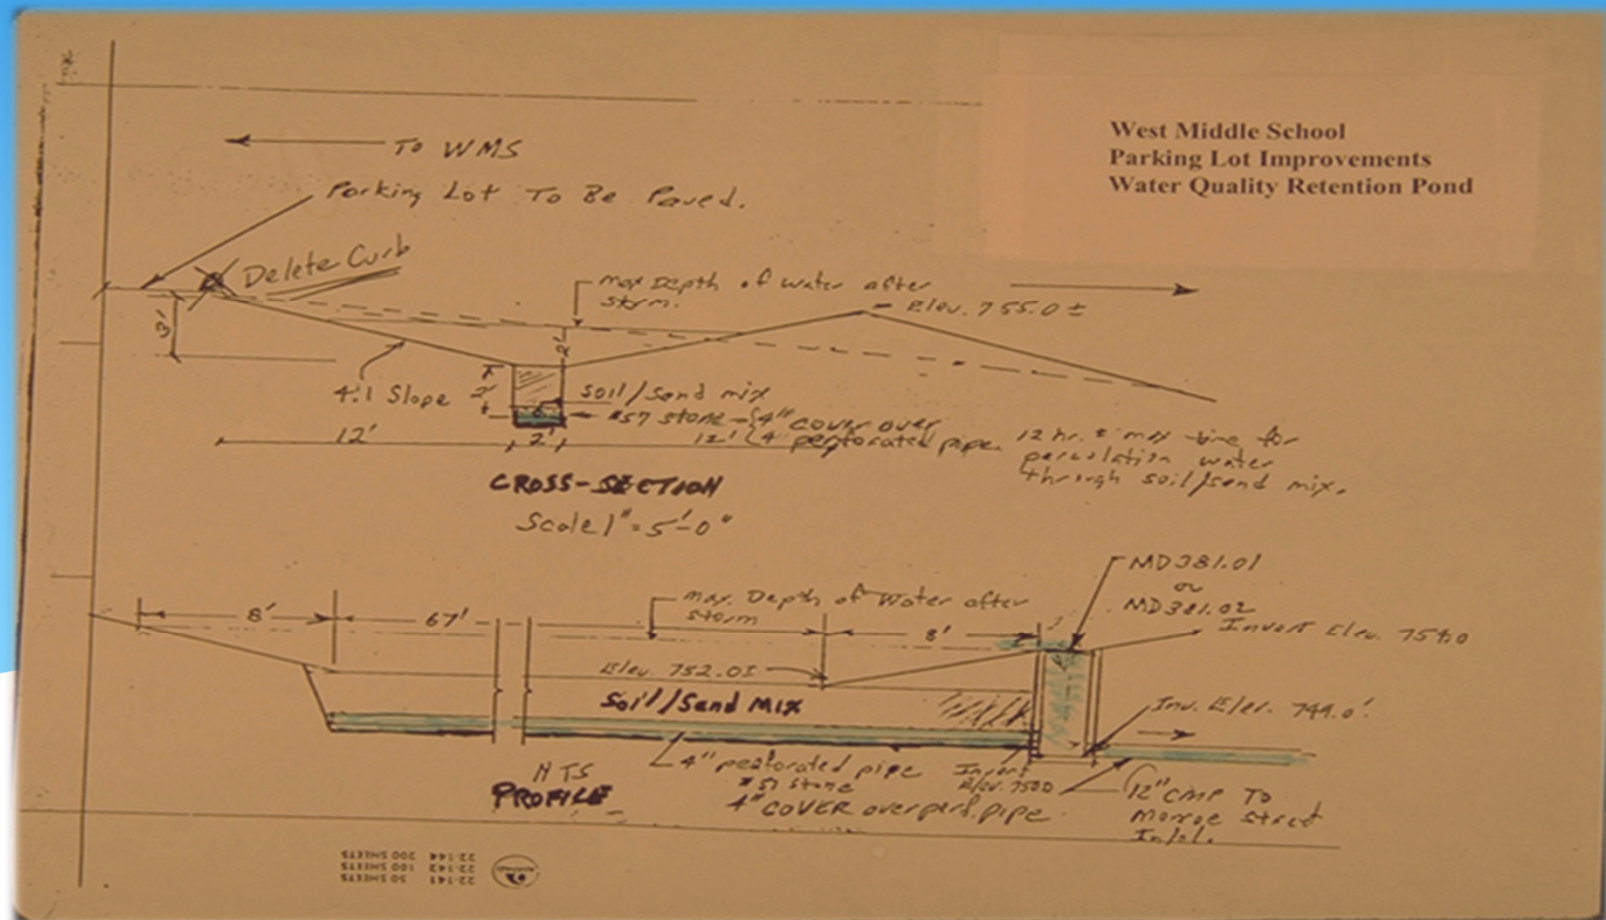 West Middle School
Parking Lot Improvements
Water Quality Retention Pond
To WMS
Parking Lot To Be Paved.
Delete Curb
Max Depth of water after
storm.
Elev. 755.0 ±
3'
2'
4:1 Slope
2'
Soil/Sand mix
#57 stone - 4" cover over
4" perforated pipe.
12'
2'
12'
12 hr. ± max time for
percolation water
through soil/sand mix.
CROSS-SECTION
Scale 1" = 5'-0"
MD381.01
or
MD381.02
Invert Elev.
8'
67'
max. Depth of Water after
storm
8'
Elev. 752.0±
Soil/Sand Mix
Inv. Elev. 749.0'
4" perforated pipe
#57 stone
4" COVER over perf. pipe
Invert
Elev. 750.0
12" CMP To
Monroe Street
Inlet.
NTS
PROFILE
22-141 50 SHEETS
22-142 100 SHEETS
22-144 200 SHEETS